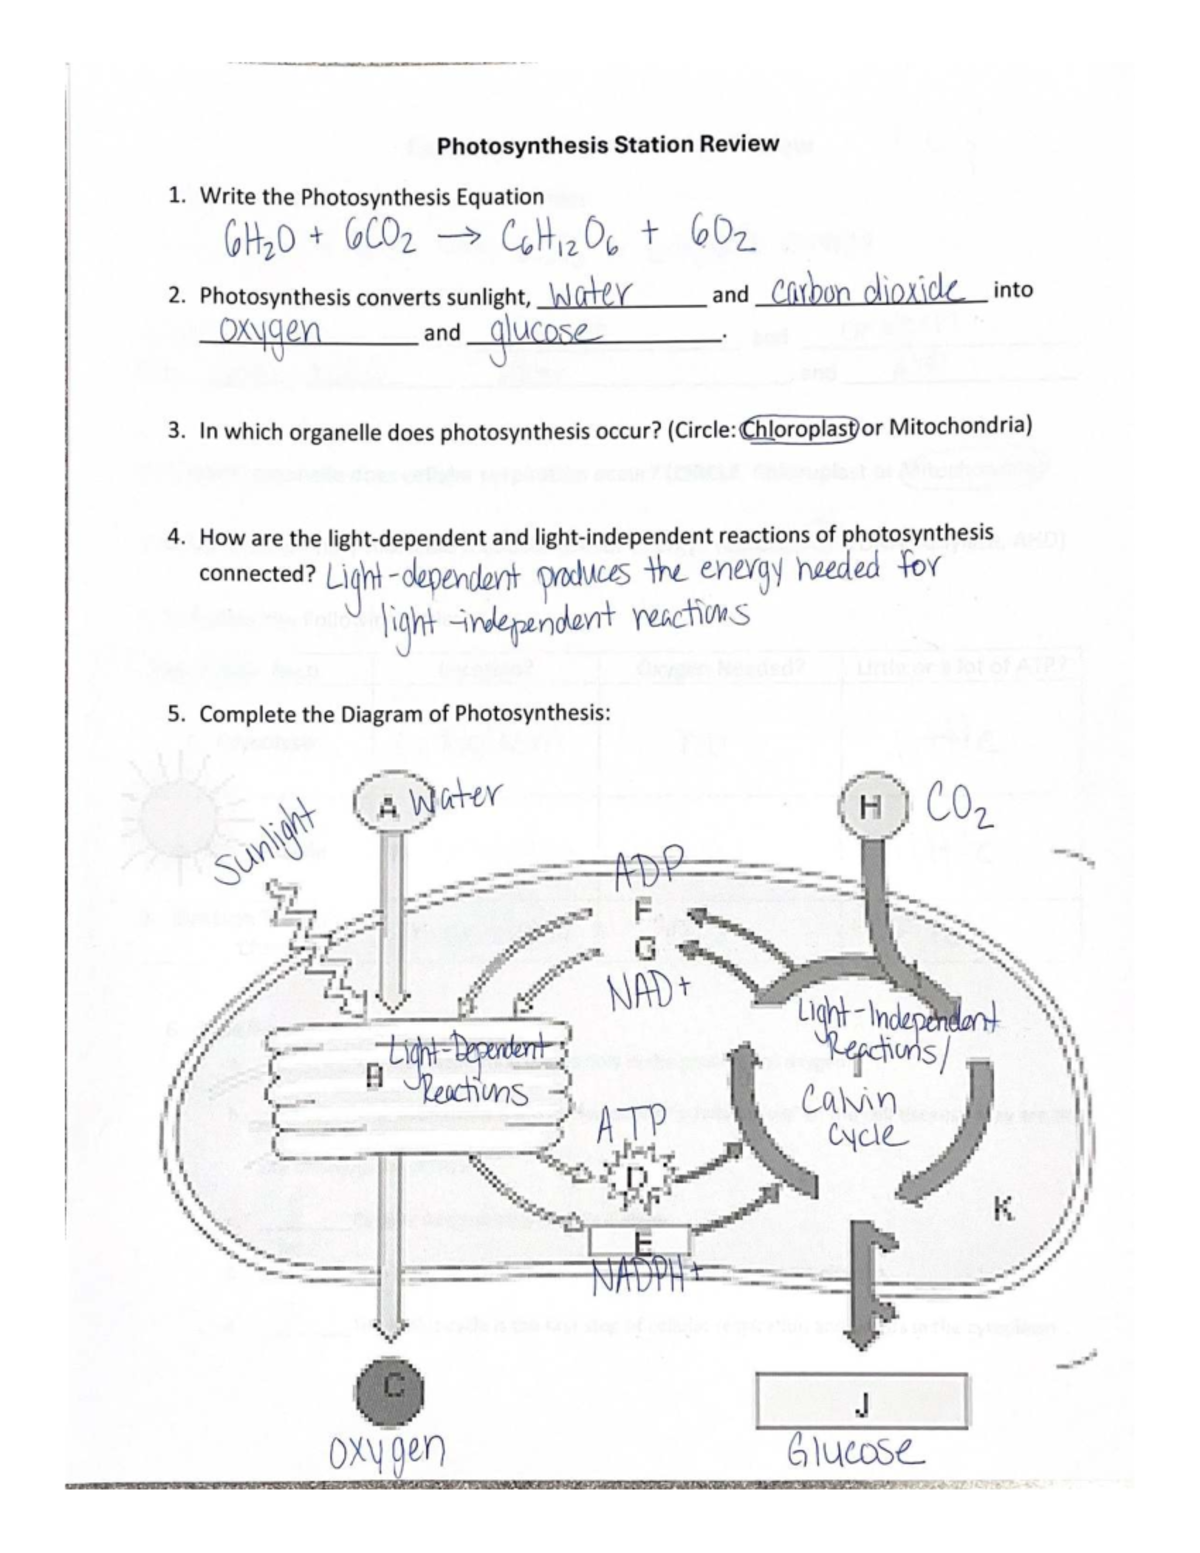 Photosynthesis Station Review
1. Write the Photosynthesis Equation
6H₂O + 6CO₂ → C₆H₁₂O₆ + 6O₂
2. Photosynthesis converts sunlight, water and carbon dioxide into
oxygen and glucose.
3. In which organelle does photosynthesis occur? (Circle: Chloroplast or Mitochondria)
4. How are the light-dependent and light-independent reactions of photosynthesis
connected? Light-dependent produces the energy needed for
light-independent reactions
5. Complete the Diagram of Photosynthesis:
A Water
H CO₂
Sunlight
ADP
F
G
NAD+
Light-Independent
Reactions/
I
Calvin
Cycle
B Light-Dependent
Reactions
ATP
D
E
NADPH+
K
C
Oxygen
J
Glucose